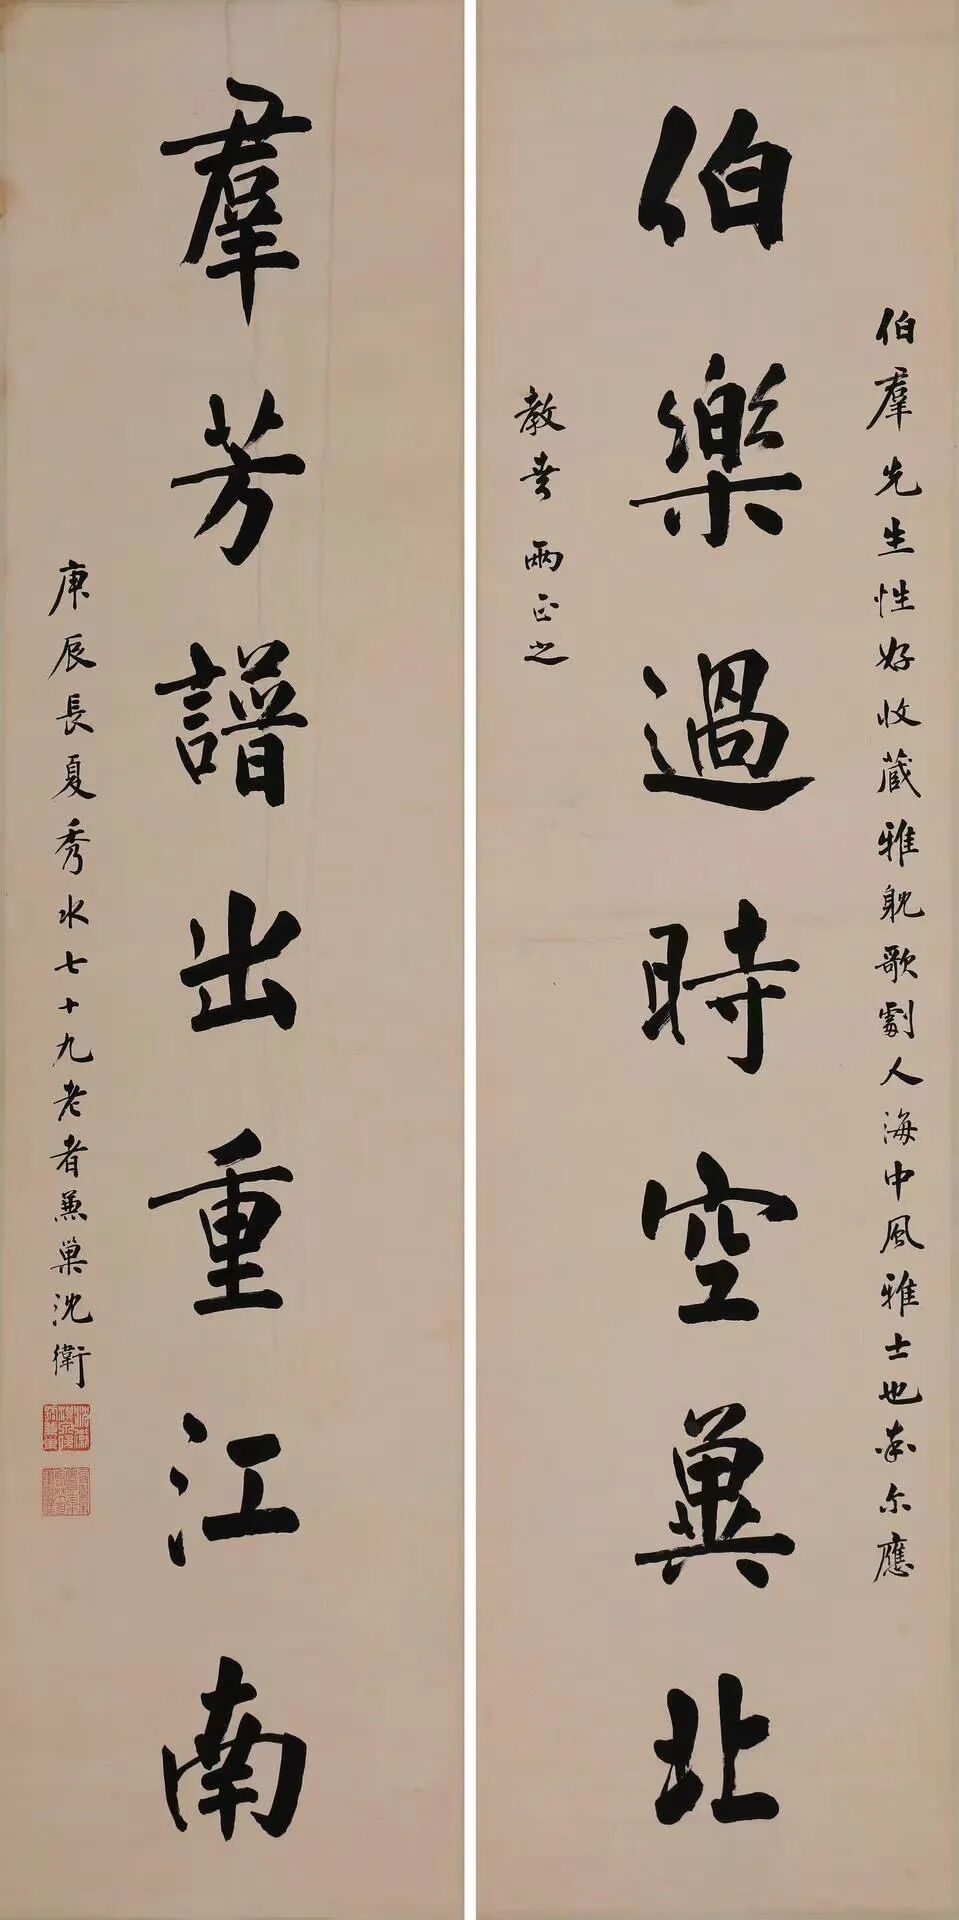 伯羣先生性好收藏雅躭歌劇人海中風雅士也奉尓應
伯樂過時空兾北
教書兩正之
羣芳譜出重江南
庚辰長夏秀水七十九老者兼巢沈衛